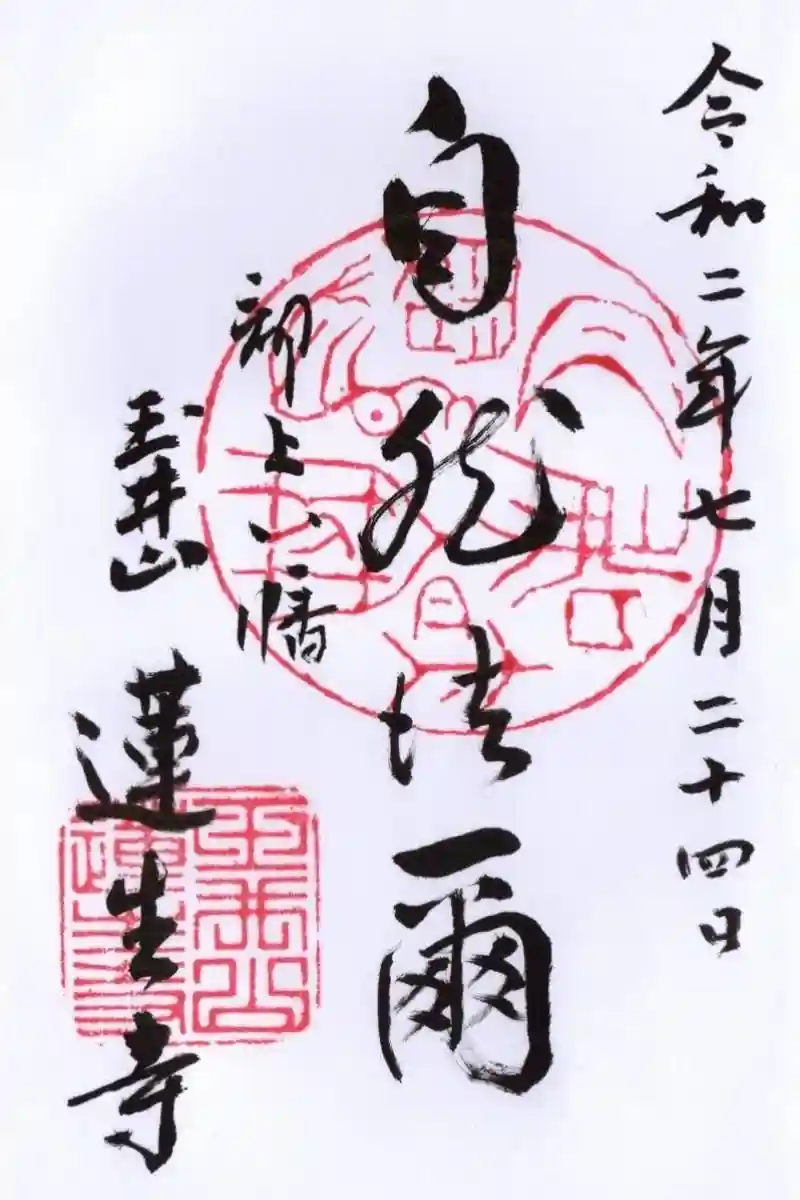 令和二年七月二十四日
自然法爾
郡上八幡
玉井山
蓮生寺